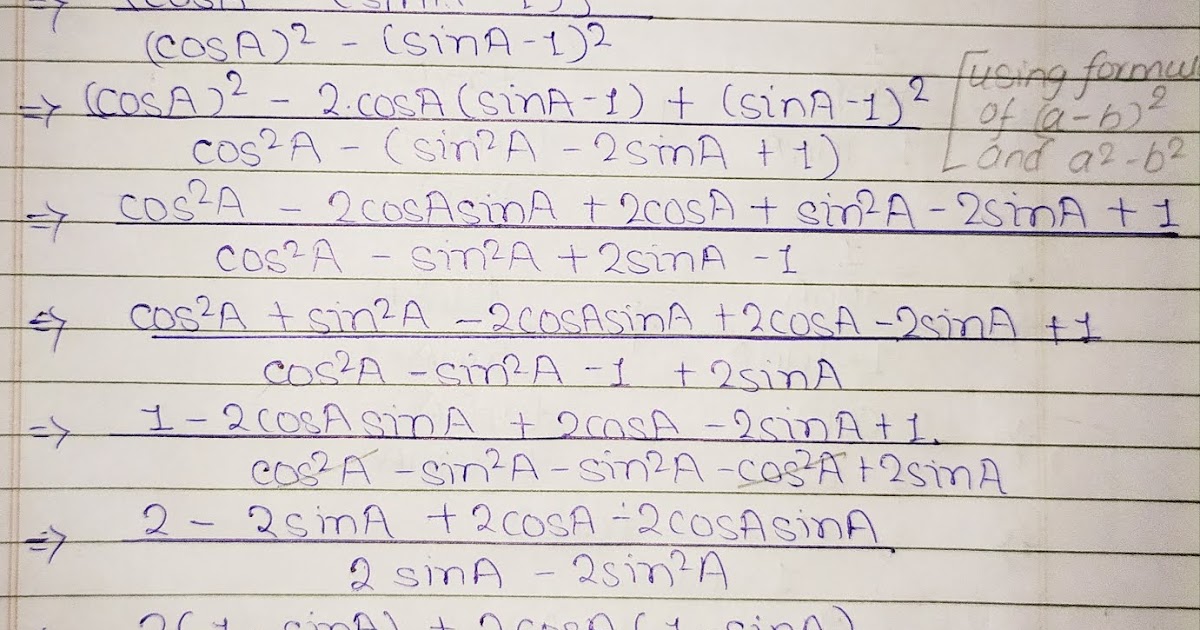 (cosA)² - (sinA-1)²
=> (cosA)² - 2.cosA(sinA-1) + (sinA-1)²
cos²A - (sin²A - 2sinA + 1)
[using
of (a-b)²
and a²-b²
=> cos²A - 2cosAsinA + 2cosA + sin²A - 2sinA + 1
cos²A - sin²A + 2sinA - 1
=> cos²A + sin²A - 2cosAsinA + 2cosA - 2sinA + 1
cos²A - sin²A - 1 + 2sinA
=> 1 - 2cosAsinA + 2cosA - 2sinA + 1.
cos²A - sin²A - sin²A - cos²A + 2sinA
=> 2 - 2sinA + 2cosA - 2cosAsinA
2sinA - 2sin²A